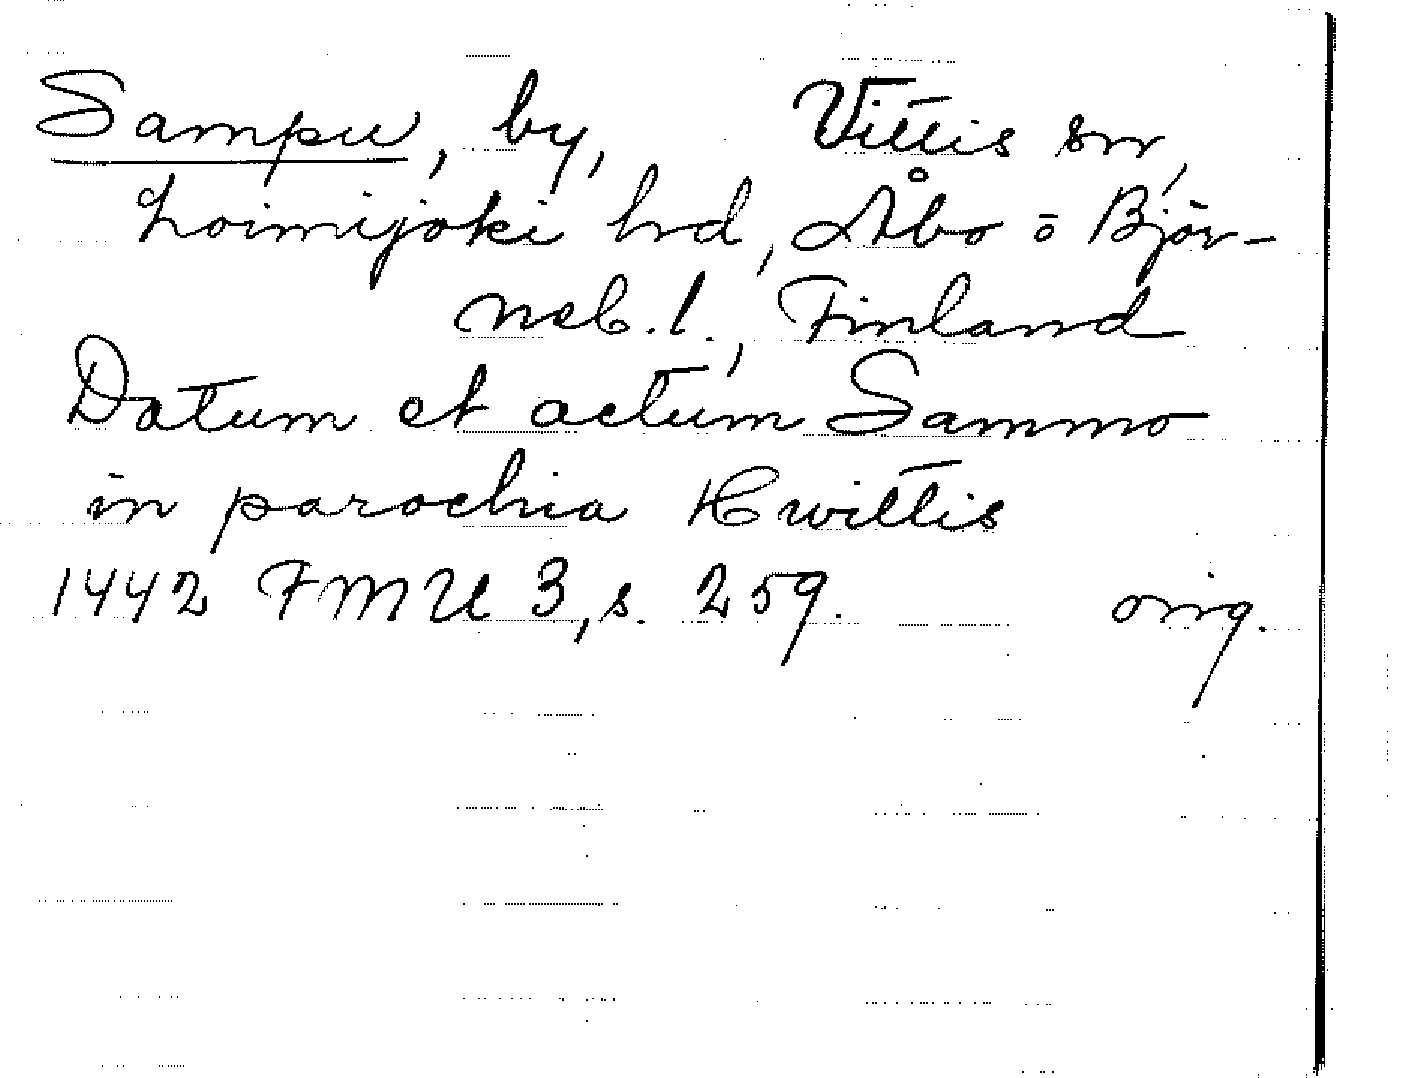 Sampu, by, Vittis sn,
Loimijoki hrd, Åbo o Björ-
neb. l., Finland
Datum et actum Sammo
in parochia Hwittis
1442 FMU 3, s. 259. orig.